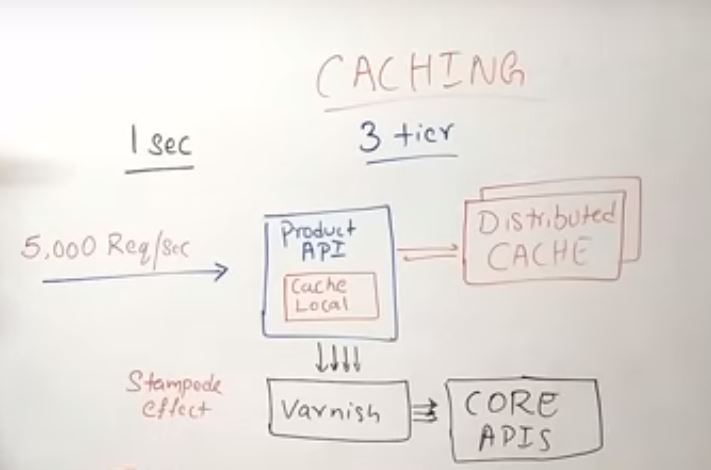 CACHING
3 tier
1 sec
5,000 Req/sec
Product
API
Cache
Local
Distributed
CACHE
Stampede
effect
Varnish
CORE
APIS